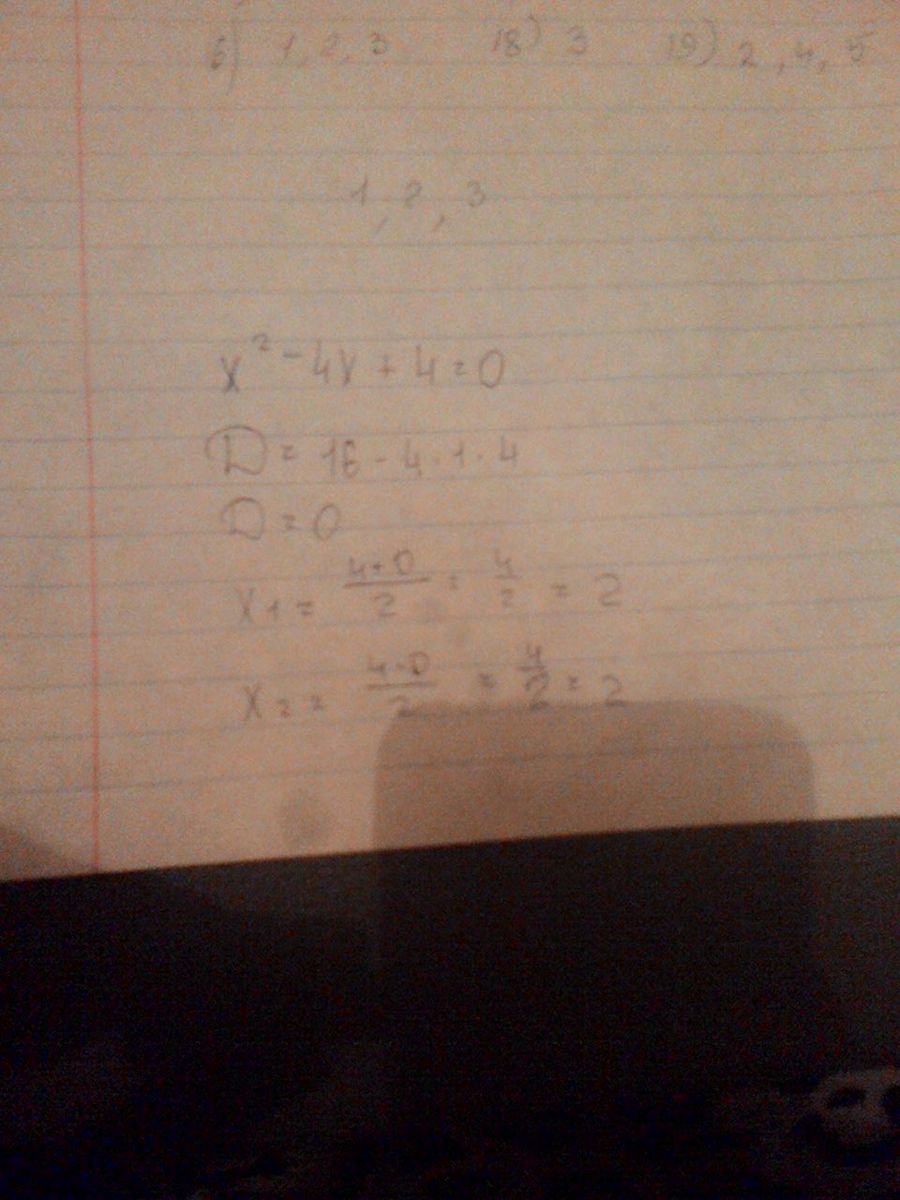 6) 1, 2, 3 18) 3 19) 2, 4, 5
1, 2, 3
x² - 4x + 4 = 0
D = 16 - 4 · 1 · 4
D = 0
x₁ = (4+0)/2 = 4/2 = 2
x₂ = (4-0)/2 = 4/2 = 2